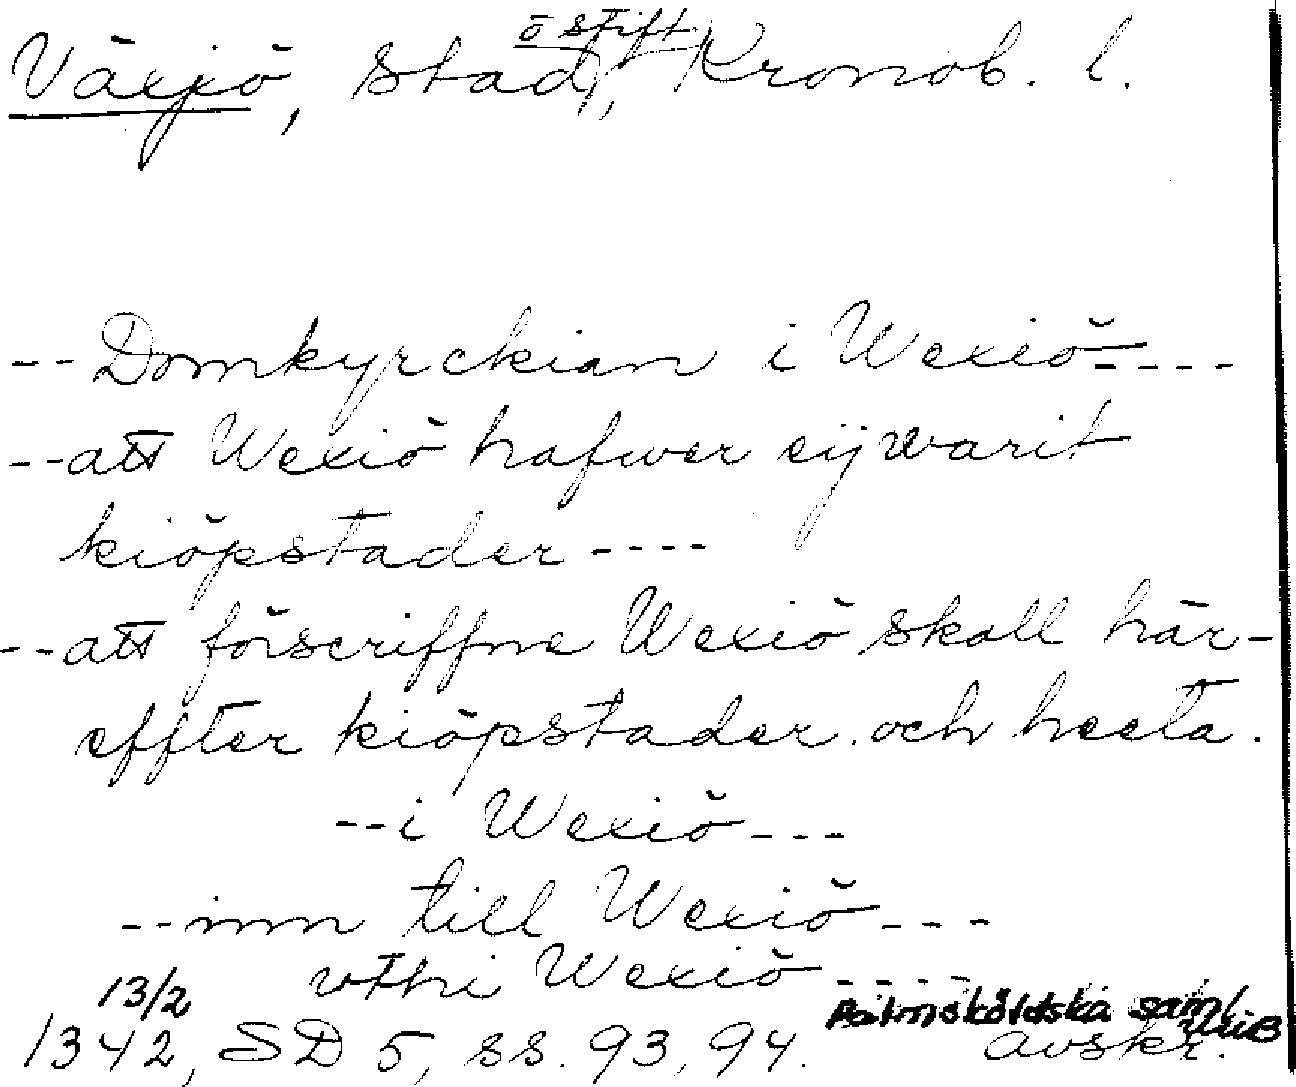 ö stift
Växjö, stad, Kronob. l.
-- Domkyrckian i Wexiö ----
-- att Wexiö hafwer eij warit
kiöpstader ----
-- att förscriffne Wexiö skall här-
effter kiöpstader och heeta.
-- i Wexiö ---
-- inn till Wexiö ---
vthi Wexiö ----
13/2
Palmsköldska saml UUB
1342, SD 5, ss. 93, 94. avskr.